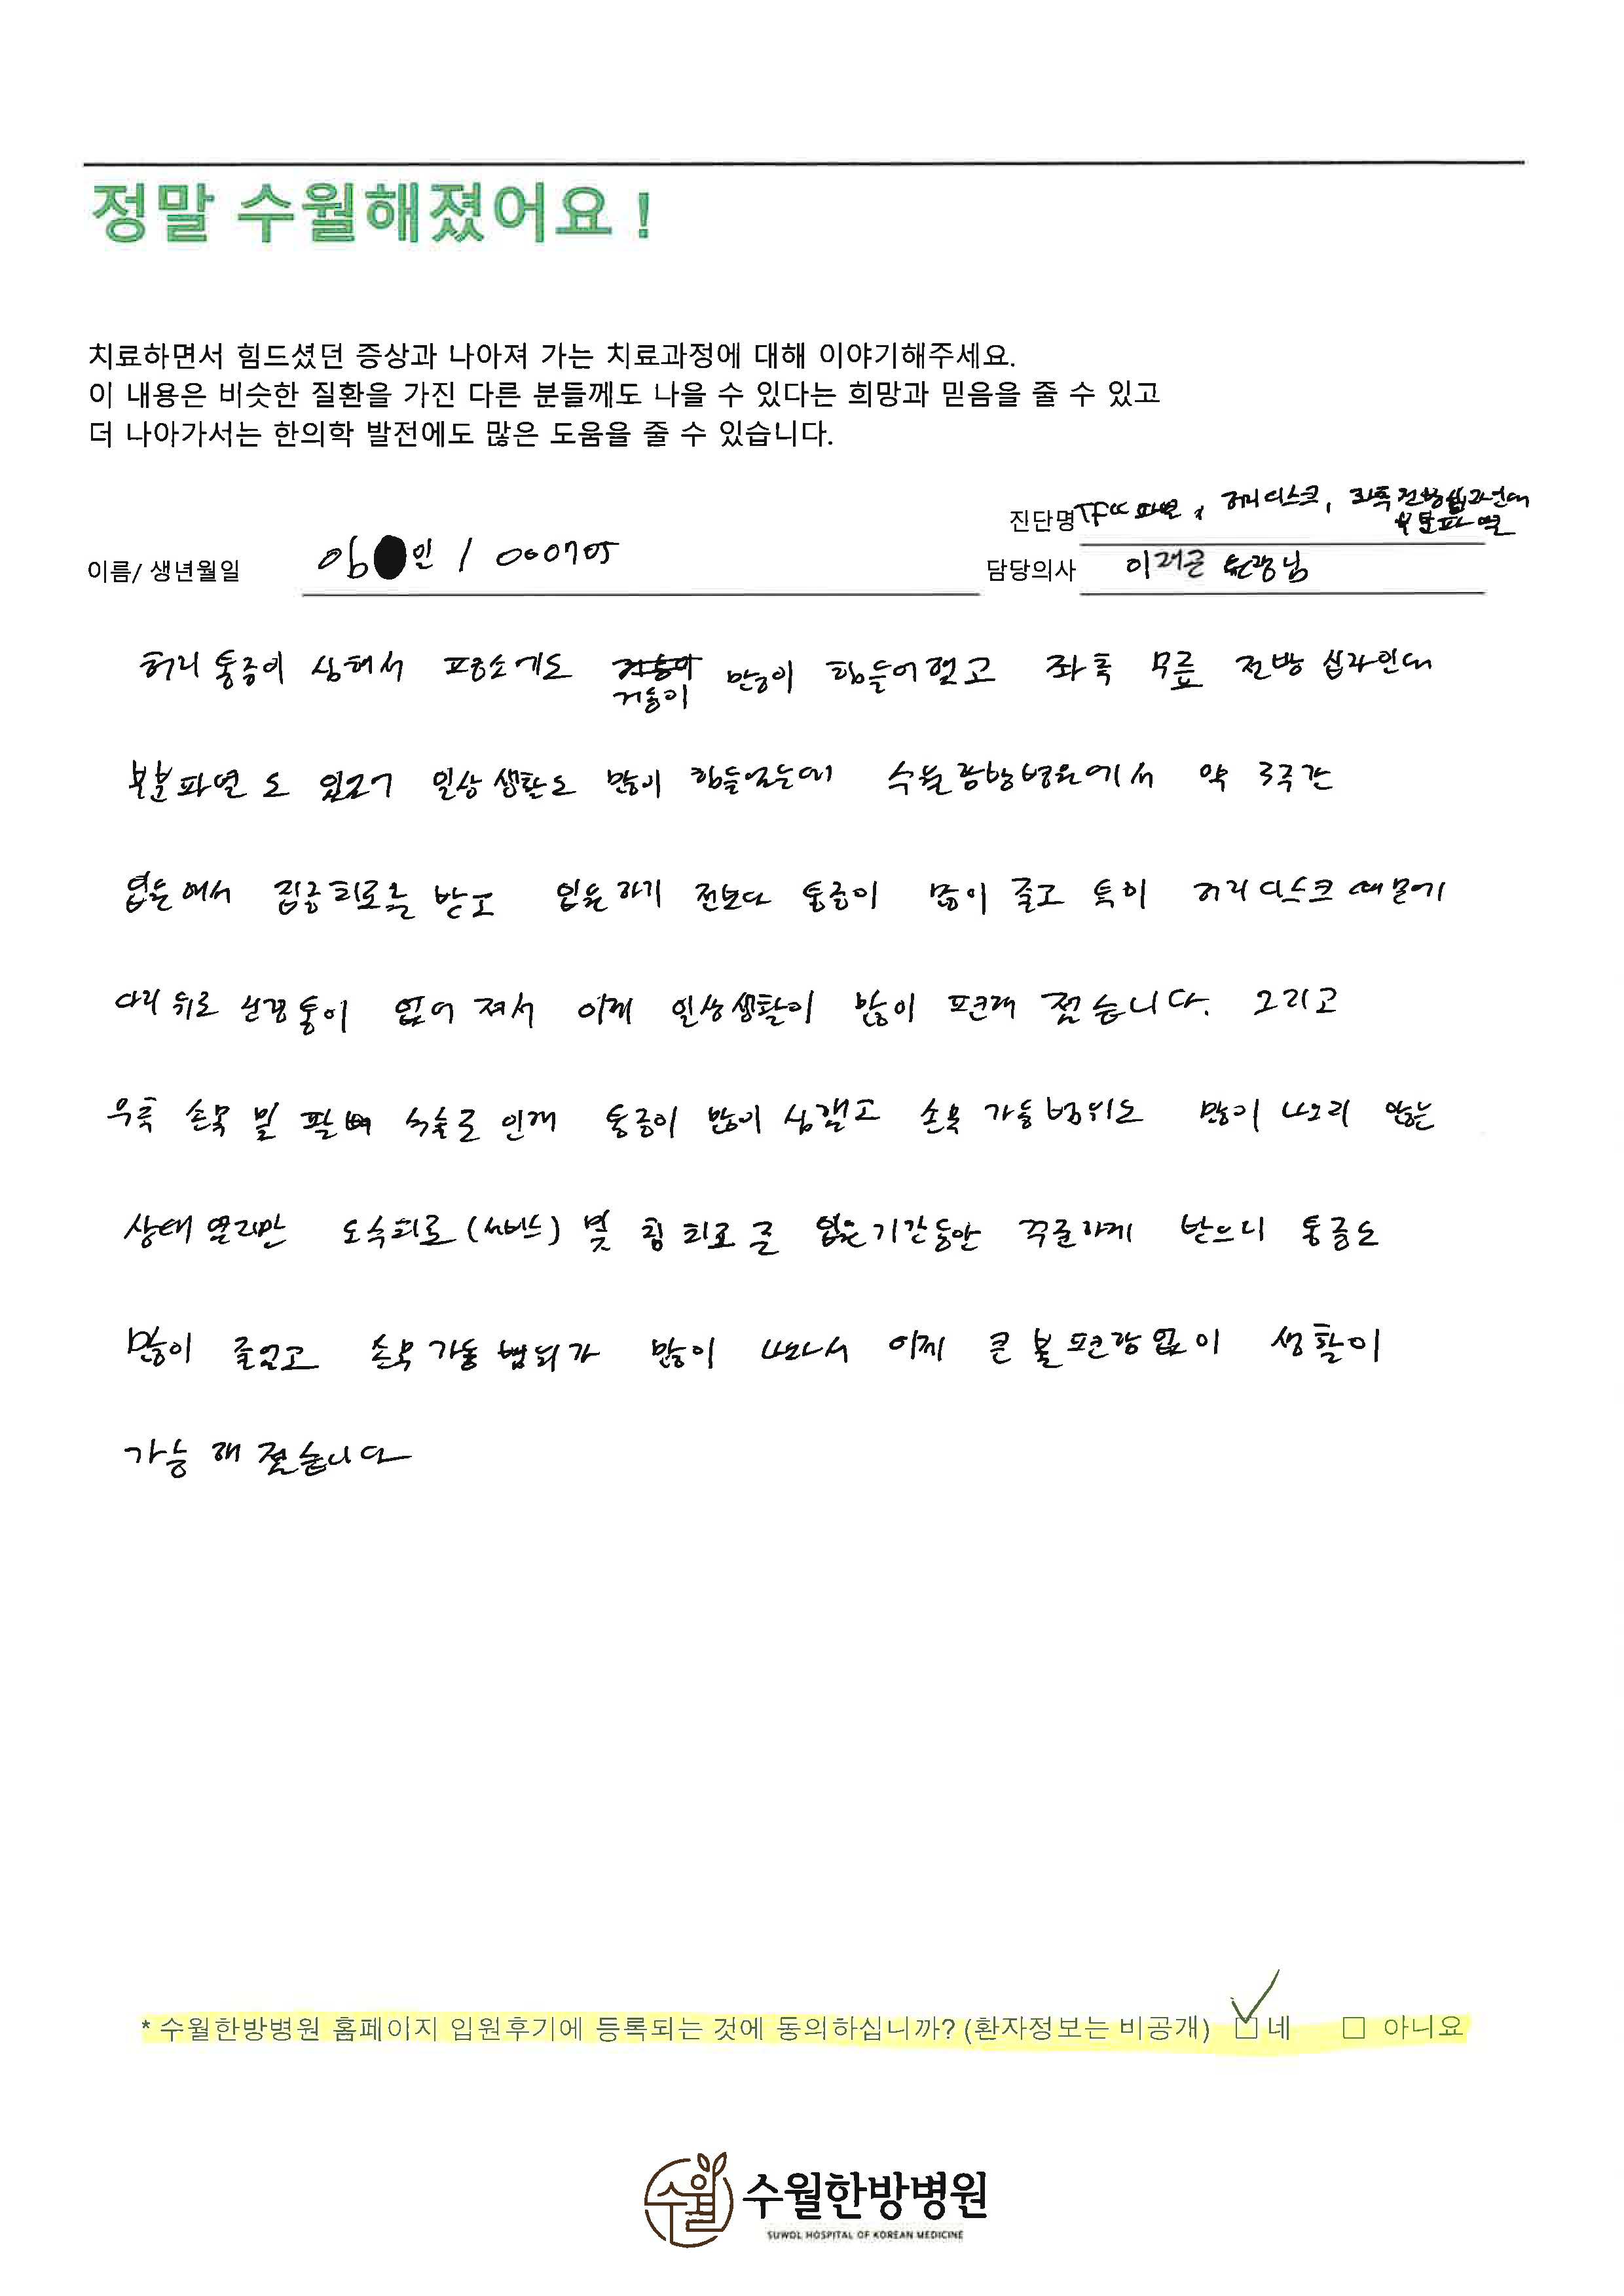 정말 수월해졌어요 !
치료하면서 힘드셨던 증상과 나아져 가는 치료과정에 대해 이야기해주세요.
이 내용은 비슷한 질환을 가진 다른 분들께도 나을 수 있다는 희망과 믿음을 줄 수 있고
더 나아가서는 한의학 발전에도 많은 도움을 줄 수 있습니다.
진단명 TFCC 파열, 허리디스크, 좌측 전방십자인대
부분파열
이름/ 생년월일 인 / 000705 담당의사 이재근 원장님
허리 통증이 심해서 평소에도 거동이 많이 힘들어 했고 좌측 무릎 전방 십자인대
부분파열도 있고 일상 생활도 많이 힘들었는데 수월한방병원에서 약 3주간
입원해서 집중치료를 받고 입원 하기 전보다 통증이 많이 줄고 특히 허리디스크 때문에
다리 뒤로 신경통이 없어 져서 이제 일상생활이 많이 편해 졌습니다. 그리고
우측 손목 및 팔 뼈 수술로 인해 통증이 많이 심했고 손목 가동범위도 많이 나오지 않는
상태 였지만 도수치료 (서비스) 및 침 치료를 입원기간동안 꾸준하게 받으니 통증도
많이 줄었고 손목 가동 범위가 많이 나와서 이제 큰 불편함없이 생활이
가능 해 졌습니다
* 수월한방병원 홈페이지 입원후기에 등록되는 것에 동의하십니까? (환자정보는 비공개) ☑ 네 □ 아니요
수월 수월한방병원
SUWOL HOSPITAL OF KOREAN MEDICINE